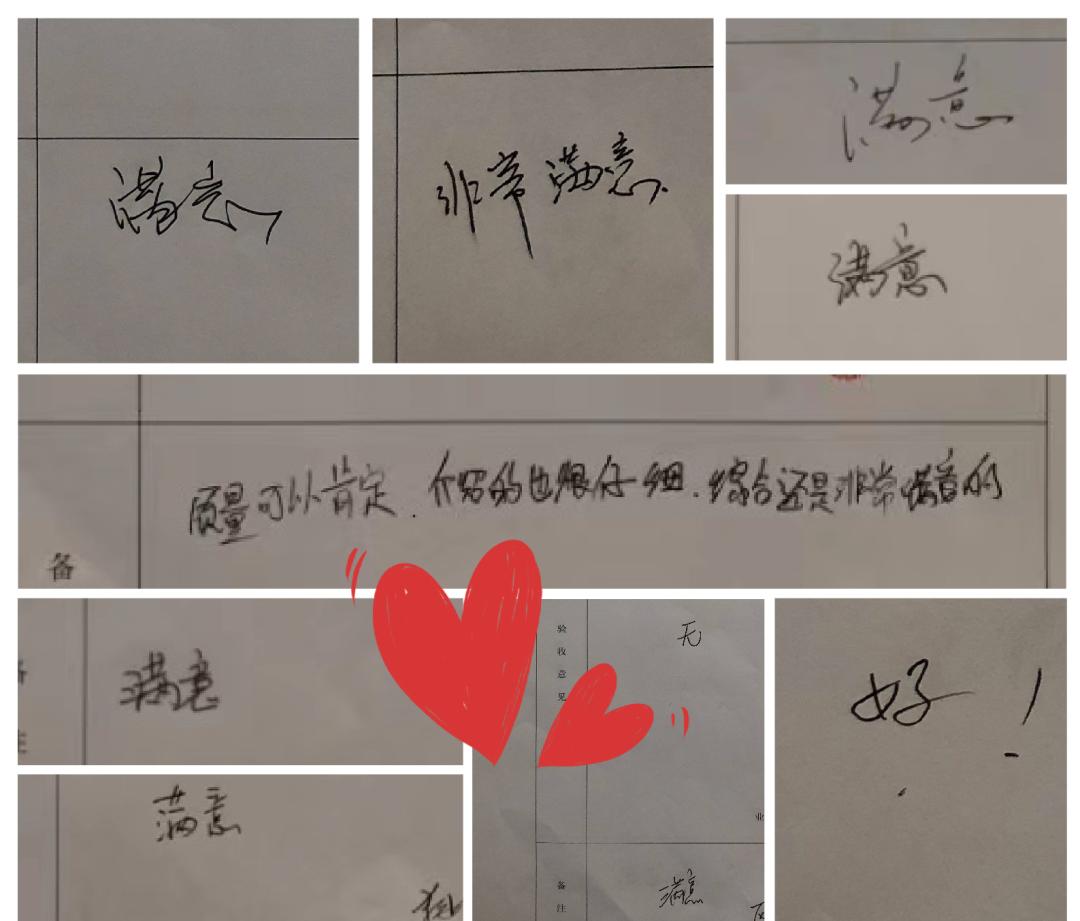 满意
非常满意
满意
满意
质量可以肯定.介绍的也很仔细.综合还是非常满意的
备
满意
验收意见
无
好!
满意
备注
满意